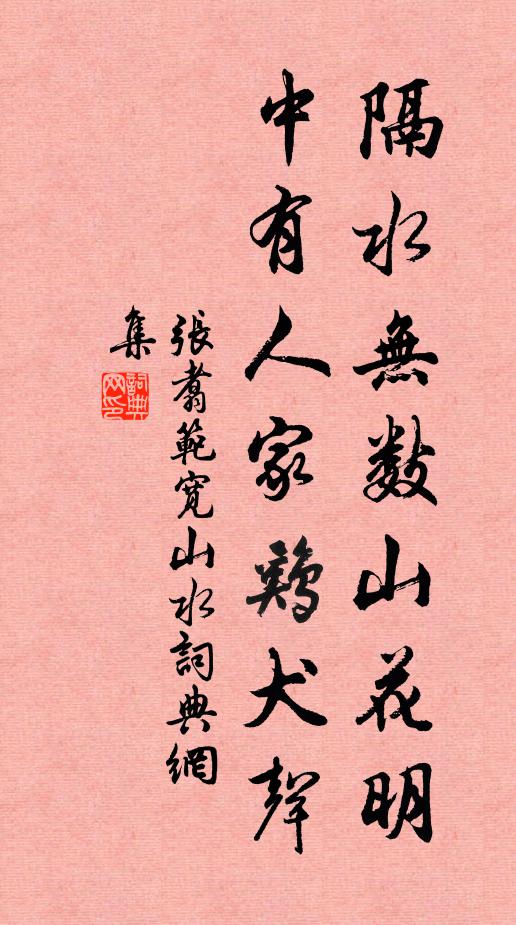 隔水無數山花明
中有人家鷄犬聲
張翥範寬山水詞典網
集
詞典網印